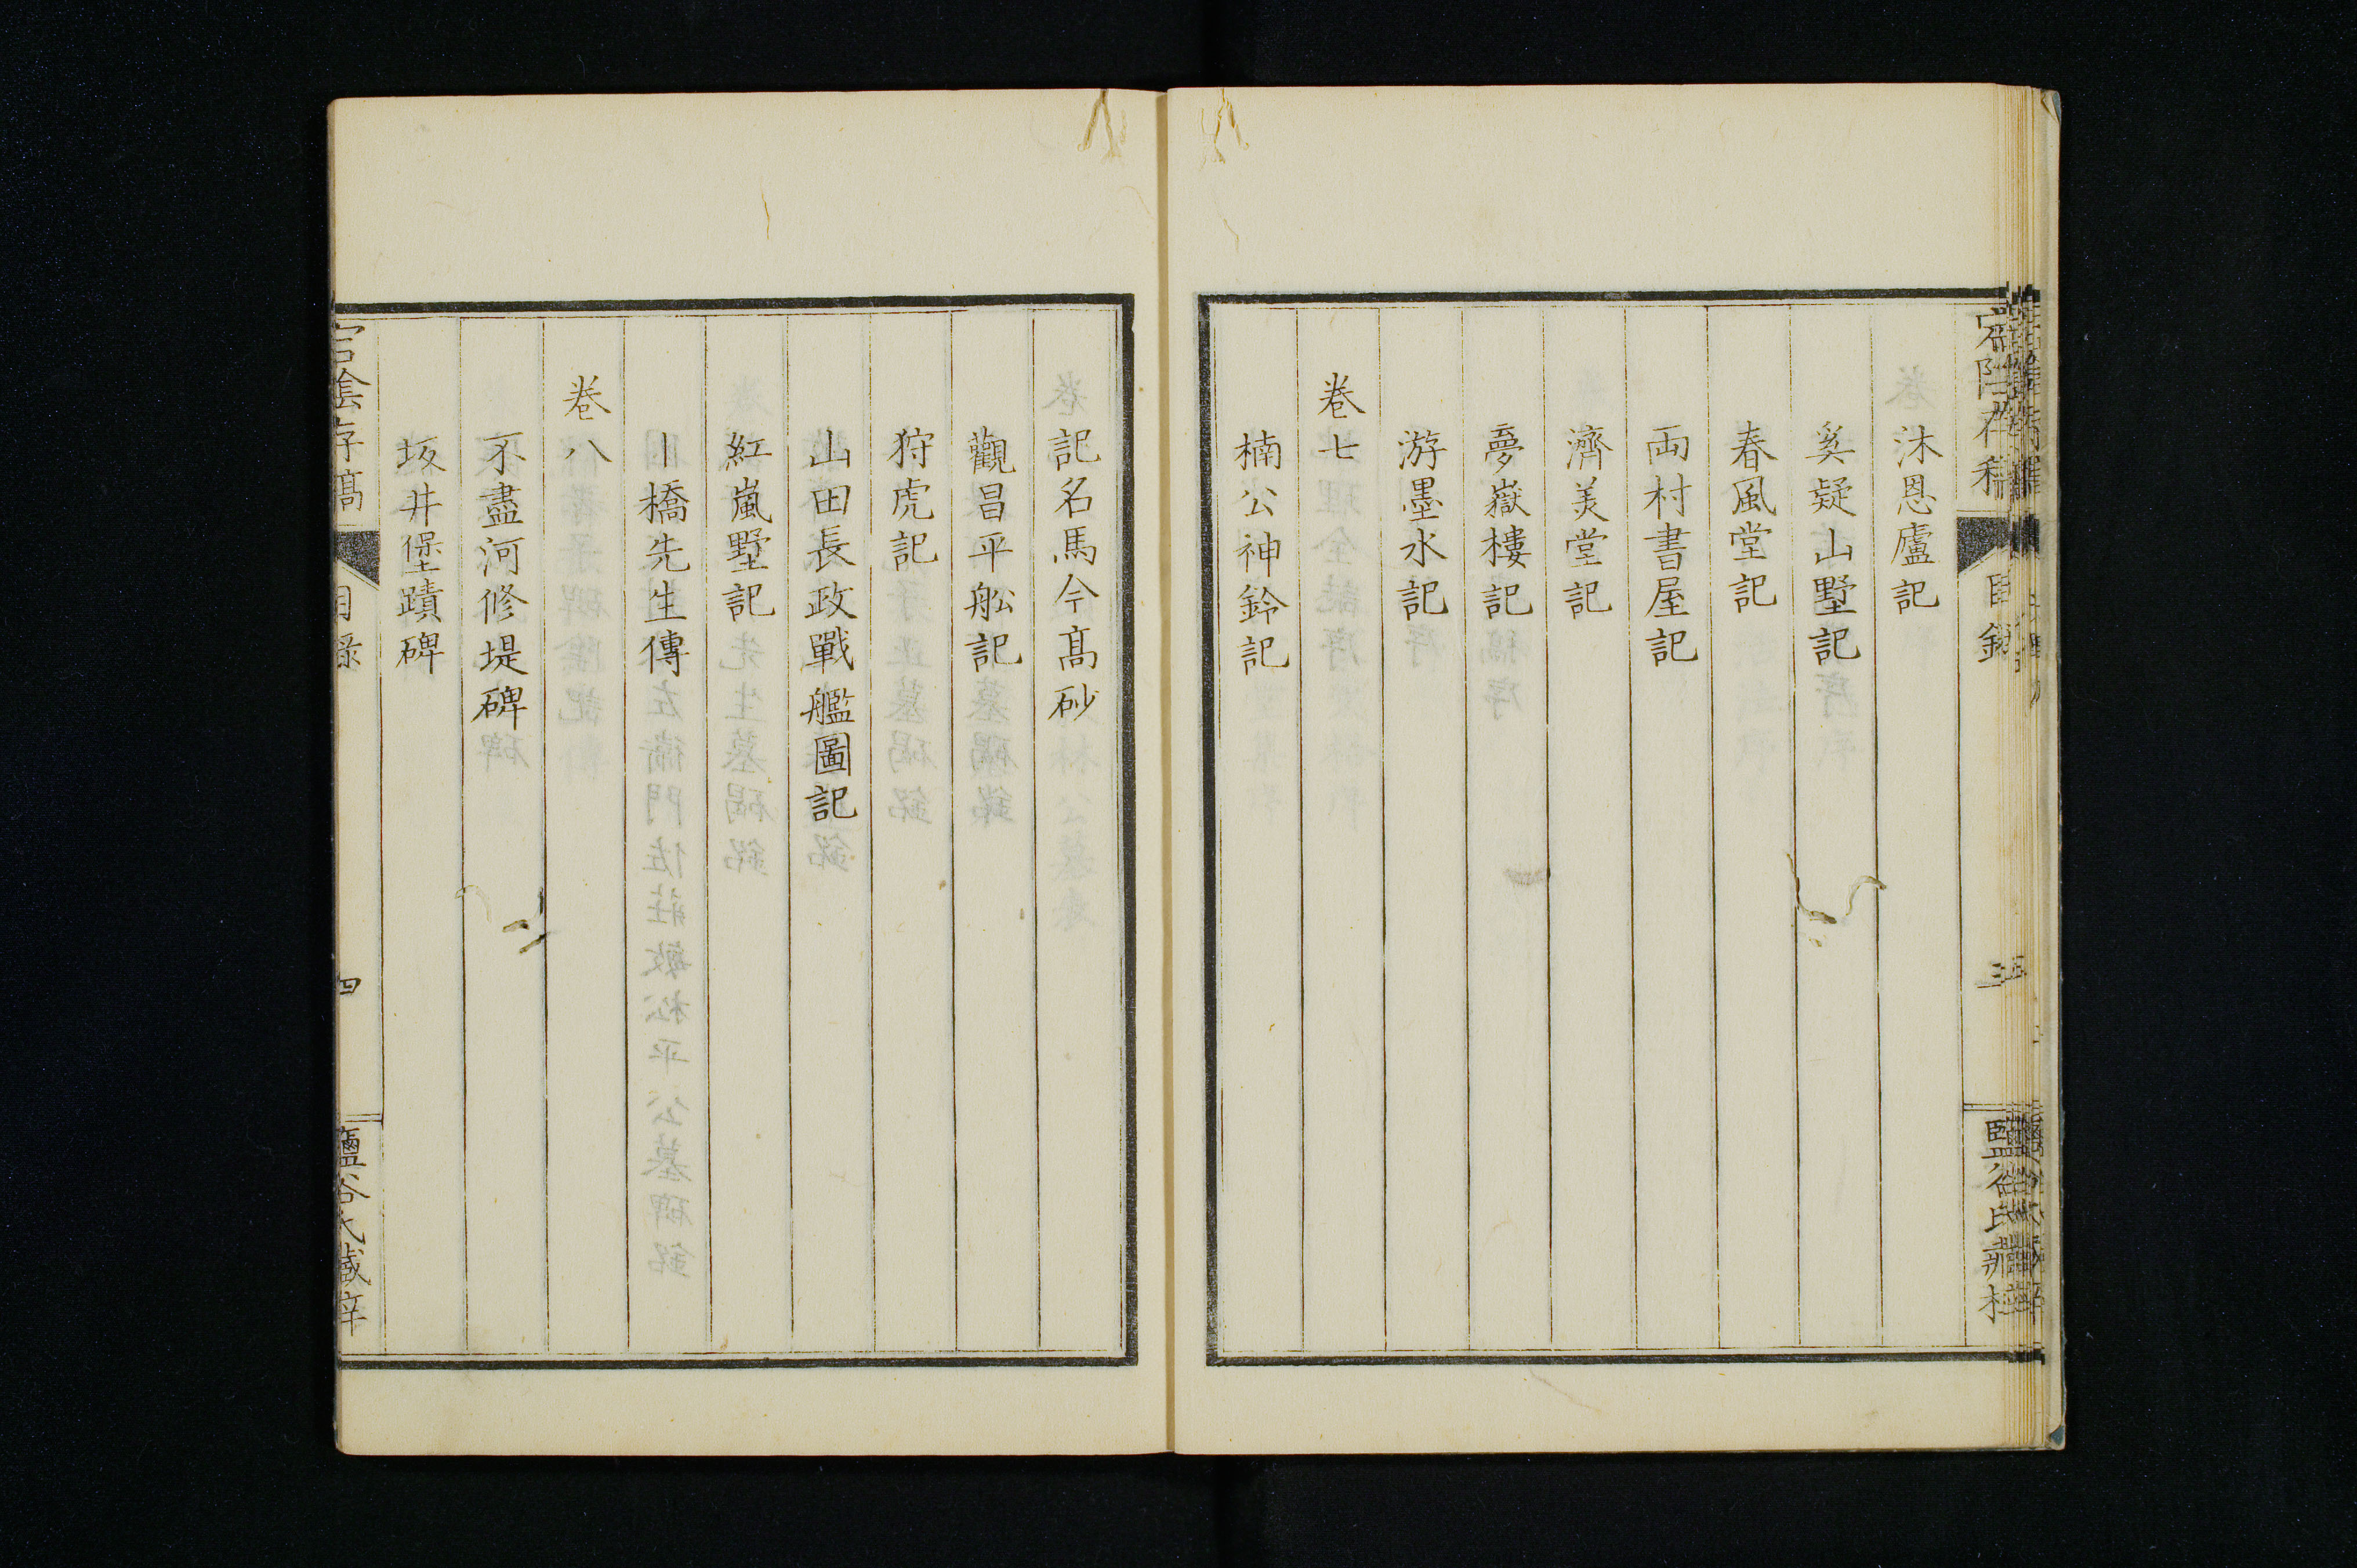 沐恩廬記
奚疑山墅記
春風堂記
両村書屋記
濟美堂記
夢嶽樓記
游墨水記
卷七
楠公神鈴記
記名馬今髙砂
觀昌平舩記
狩虎記
山田長政戰艦圖記
紅嵐墅記
丨橋先生傳
卷八
不盡河修堤碑
坂井堡蹟碑
宕陰存稿
目錄
四
鹽谷氏藏梓